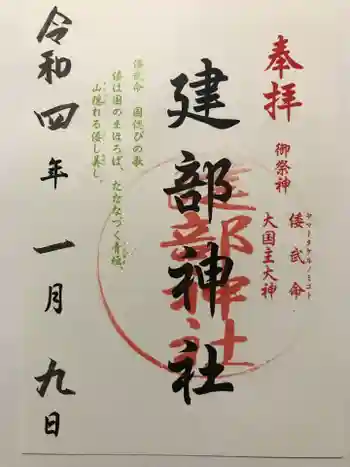 奉拝
御祭神
倭武命
ヤマトタケルノミコト
大国主大神
建部神社
建部神社
倭武命　国偲びの歌
倭は国のまほろば、たたなづく青垣、
山隠れる倭し美し。
令和四年 一月 九日